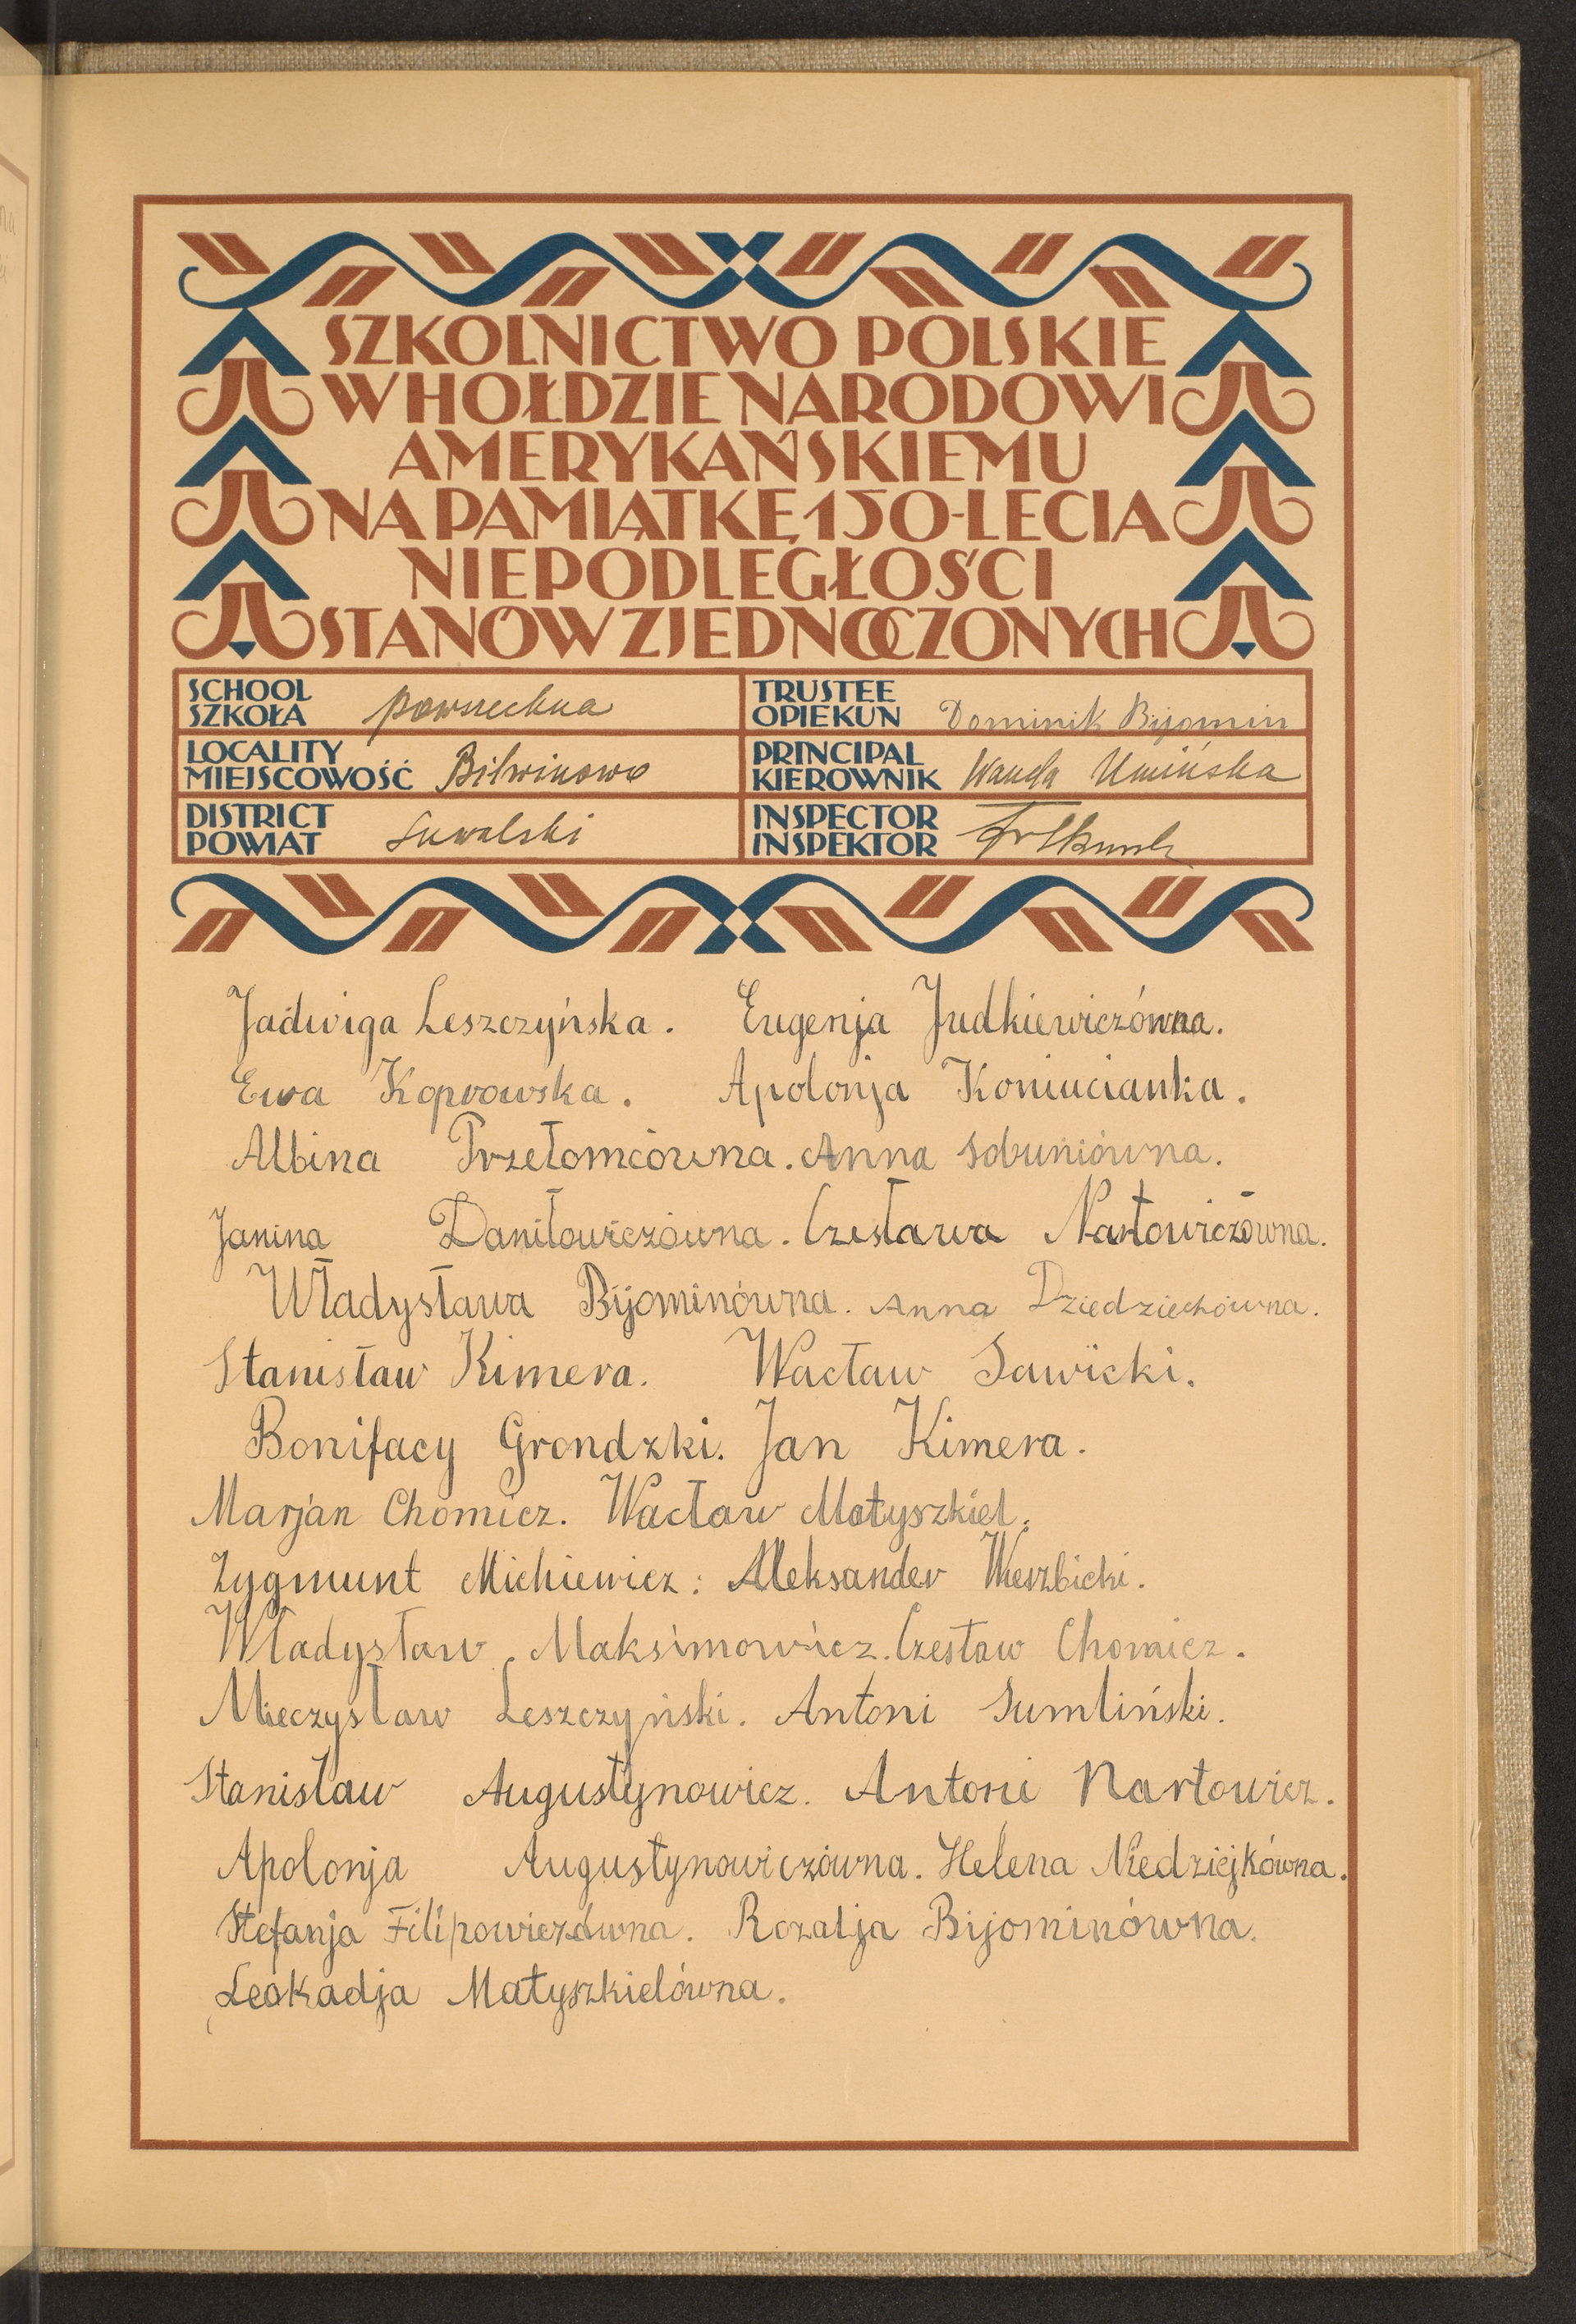 SZKOLNICTWO POLSKIE
W HOŁDZIE NARODOWI
AMERYKAŃSKIEMU
NA PAMIĄTKĘ 150-LECIA
NIEPODLEGŁOŚCI
STANÓW ZJEDNOCZONYCH
SCHOOL
SZKOŁA powszechna
TRUSTEE
OPIEKUN Dominik Bijomin
LOCALITY
MIEJSCOWOŚĆ Bilwinowo
PRINCIPAL
KIEROWNIK Wanda Umińska
DISTRICT
POWIAT Suwalski
INSPECTOR
INSPEKTOR
Jadwiga Leszczyńska. Eugenja Judkiewiczówna.
Ewa Koprowska. Apolonja Koniucianka.
Albina Przełomcówna. Anna Sobuniówna.
Janina Daniłowiczówna. Czesława Nartowiczówna.
Władysława Bijominówna. Anna Dziedziechówna.
Stanisław Kimera. Wacław Sawicki.
Bonifacy Grondzki. Jan Kimera.
Marjan Chomicz. Wacław Matyszkiel.
Zygmunt Michiewicz. Aleksander Wierzbicki.
Władysław Maksimowicz. Czesław Chomicz.
Mieczysław Leszczyński. Antoni Sumliński.
Stanisław Augustynowicz. Antoni Nartowicz.
Apolonja Augustynowiczówna. Helena Niedziejkówna.
Stefanja Filipowiczówna. Rozalja Bijominówna.
Leokadja Matyszkielówna.